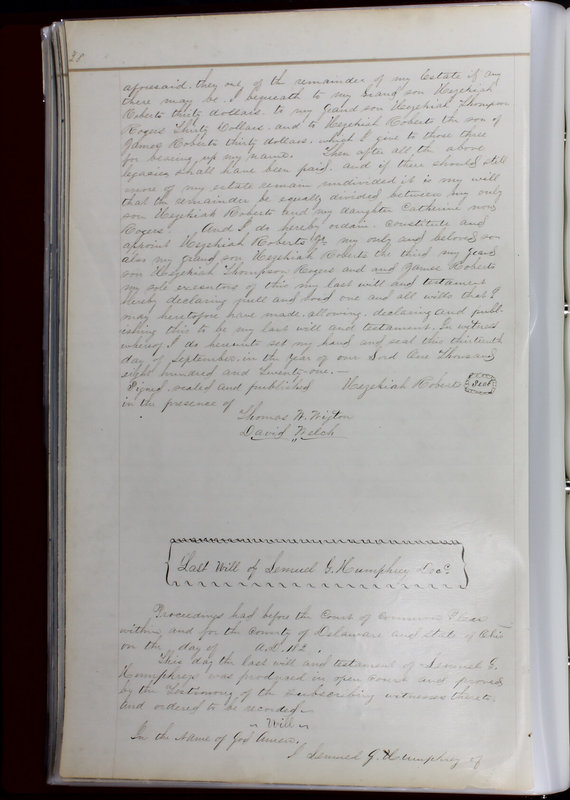 28
aforesaid. they one of the remainder of my Estate if any
there may be. I bequeath to my Grand son Hezekiah
Roberts thirty dollars. to my Grand son Hezekiah Thompson
Rogers Thirty Dollars. and to Hezekiah Roberts the son of
James Roberts thirty dollars. which I give to those three
for bearing up my name. Then after all the above
legacies shall have been paid. and if there should still
more of my estate remain undivided it is my will
that the remainder be equally divided between my only
son Hezekiah Roberts and my daughter Catherine now
Rogers. And I do hereby ordain. constitute and
appoint Hezekiah Roberts Jr. my only and beloved son
also my grand son Hezekiah Roberts the third my Grand
son Hezekiah Thompson Rogers and and James Roberts
my sole executors of this my last will and testament
hereby declaring null and void one and all wills that I
may heretofore have made. allowing. declaring and publ-
ishing this to be my last will and testament. In witness
whereof I do hereunto set my hand and seal this thirteenth
day of September. in the year of our Lord One Thousand
eight hundred and twenty-one.—
Signed, sealed and published Hezekiah Roberts Seal
in the presence of
Thomas W. Wigton
David Welch
Last Will of Lemuel G. Humphrey Decd.
Proceedings had before the Court of Common Pleas
within and for the County of Delaware and State of Ohio
on the day of A.D. 182 .
This day the last will and testament of Lemuel G.
Humphrey was produced in open Court and proved
by the Testimony of the subscribing witnesses thereto
and ordered to be recorded.
Will
In the Name of God Amen.
I Lemuel G. Humphrey of